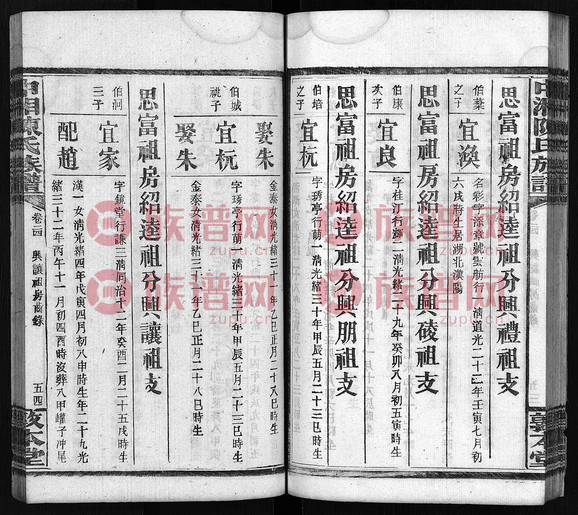 中湘陳氏族譜
卷三四
敦本堂
思富祖房紹逵祖分興禮祖支
伯藻
之子
宜渙
名彩字深章號
行一清道光二十二年壬寅七月初
六戌時生居湖北漢陽
思富祖房紹逵祖分興稜祖支
伯康
次子
宜良
字桂汀行
清光緒二十九年癸卯八月初五寅時生
思富祖房紹逵祖分興朋祖支
伯培
之子
宜杬
字琇亭行蘭一清光緒三十年甲辰五月二十三巳時生
娶朱
金泰女清光緒三十一年乙巳正月二十八巳時生
伯城
祧子
宜杬
字琇亭行蘭一清光緒三十年甲辰五月二十三巳時生
娶朱
金泰女清光緒三十一年乙巳正月二十八巳時生
思富祖房紹逵祖分興讓祖支
伯泂
三子
宜家
字鏡堂行謙三清同治十二年癸酉二月二十五戌時生
配趙
漢一女清光緒四年戊寅四月初八申時生年二十九光
緒三十二年丙午十一月初四酉時沒葬八甲罐子沖尾
中湘陳氏族譜
卷三四
興讓祖房齒錄
五四
敦本堂
族譜网
zupu.cn
族譜网
zupu.cn